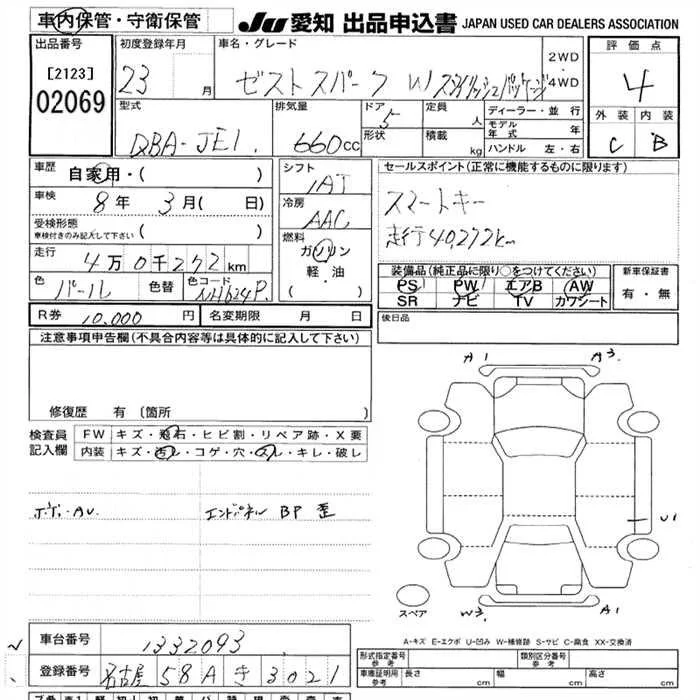 車内保管・守衛保管
JU 愛知 出品申込書 JAPAN USED CAR DEALERS ASSOCIATION
出品番号 初度登録年月 車名・グレード 2WD・4WD 評価点
[2123]
02069
23 月 ゼスト スパーク W スタイリッシュパッケージ 4
型式 排気量 ドア 定員 ディーラー・並行 外装 内装
DBA-JE1. 660cc 5 人 モデル年式 年 C B
形状 積載 kg ハンドル 左・右
車歴 自家用・( ) シフト IAT セールスポイント(正常に機能するものに限ります)
車検 8年 3月( 日) 冷房 AAC スマートキー
受検形態 車検付きのみ記入して下さい ( ) 燃料 ガソリン 軽・油 ・( ) 走行40272km
走行 4万0千272km 装備品(純正品に限り○をつけてください) 新車保証書
色 パール 色替 色コード NH624P. PS PW エアB AW 有・無
SR ナビ TV カワシート
R券 10,000円 名変期限 月 日 後日品
注意事項申告欄(不具合内容等は具体的に記入して下さい)
修復歴 有 (箇所
検査員記入欄 FW キズ・飛石・ヒビ割・リペア跡・X要
内装 キズ・汚れ・コゲ・穴・スレ・キレ・破レ
A1 A3
エンドパネル BP 歪
U1
スペア W3 A1
A-キズ E-エクボ U-凹み W-補修跡 S-サビ C-腐食 XX-交換済
車台番号 1332093
登録番号 名古屋 58A き 3021
形式指定番号 参考 類別区分番号 参考
車庫証明用 参考 長さ cm 幅 cm 高さ cm